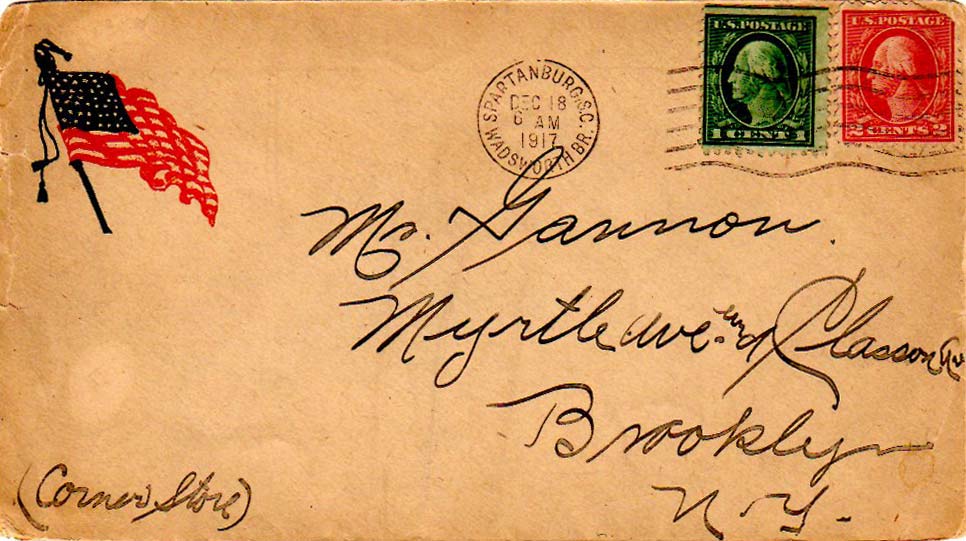 U.S. POSTAGE
1 CENT 1
U.S. POSTAGE
2 CENTS 2
SPARTANBURG, S.C.
DEC 18
6 AM
1917
WADSWORTH BR.
Mr. Gannon.
Myrtle Ave. and Classon Av
Brooklyn
N.Y.
(Corner Store)